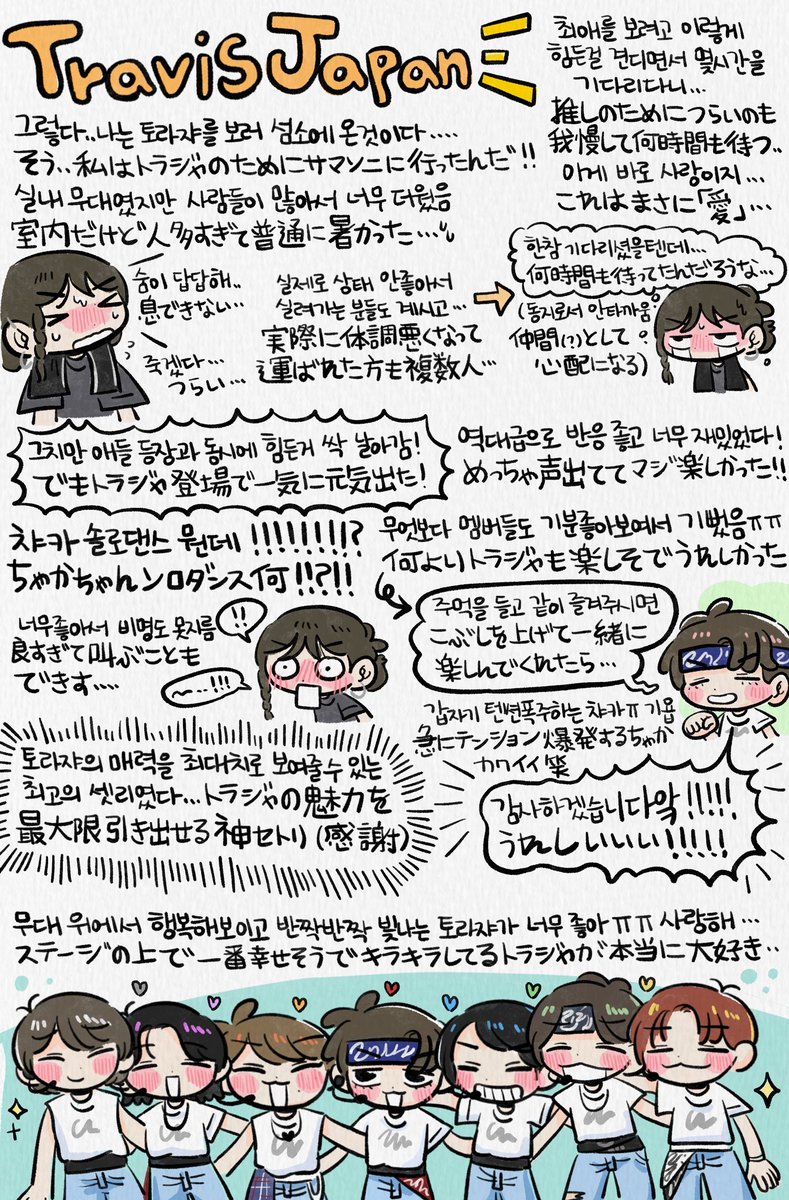 Travis Japan
최애를 보려고 이렇게
힘든걸 견디면서 몇시간을
기다리다니...
推しのためにつらいのも
我慢して何時間も待つ..
이게 바로 사랑이지...
これはまさに「愛」...
그렇다..나는 토라쟈를 보러 섬소에 온것이다....
そう..私はトラジャのためにサマソニに行ったんだ!!
실내 무대였지만 사람들이 많아서 너무 더웠음
室内だけど人多すぎて普通に暑かった...
숨이 답답해..
息できない...
죽겠다...
つらい...
실제로 상태 안좋아서
실려가는 분들도 계시고...
実際に体調悪くなって
運ばれた方も複数人...
한참 기다리셨을텐데...
何時間も待ってたんだろうな...
(동지로서 안타까움
仲間(?)として
心配になる)
그치만 애들 등장과 동시에 힘든거 싹 날아감!
でもトラジャ登場で一気に元気出た!
역대급으로 반응 좋고 너무 재밌었다!
めっちゃ声出ててマジ楽しかった!!
챠카 솔로댄스 뭔데 !!!!!!!!?
ちゃかちゃんソロダンス何!!?!!
너무좋아서 비명도 못지름
良すぎて叫ぶことも
できず....
!!
~...!!!
무엇보다 멤버들도 기분좋아보여서 기뻤음ㅠㅠ
何よりトラジャも楽しそでうれしかった
주먹을 들고 같이 즐겨주시면
こぶしを上げて一緒に
楽しんでくれたら...
갑자기 텐션폭주하는 챠카ㅠ 기욥
急にテンション爆発するちゃか
カワイイ笑
감사하겠습니다악 !!!!!
うれしいいいい!!!!!
토라쟈의 매력을 최대치로 보여줄수 있는
최고의 셋리였다...トラジャの魅力を
最大限引き出せる神セトリ(感謝)
무대 위에서 행복해보이고 반짝반짝 빛나는 토라쟈가 너무 좋아 ㅠㅠ 사랑해...
ステージの上で一番幸せそうでキラキラしてるトラジャが本当に大好き..